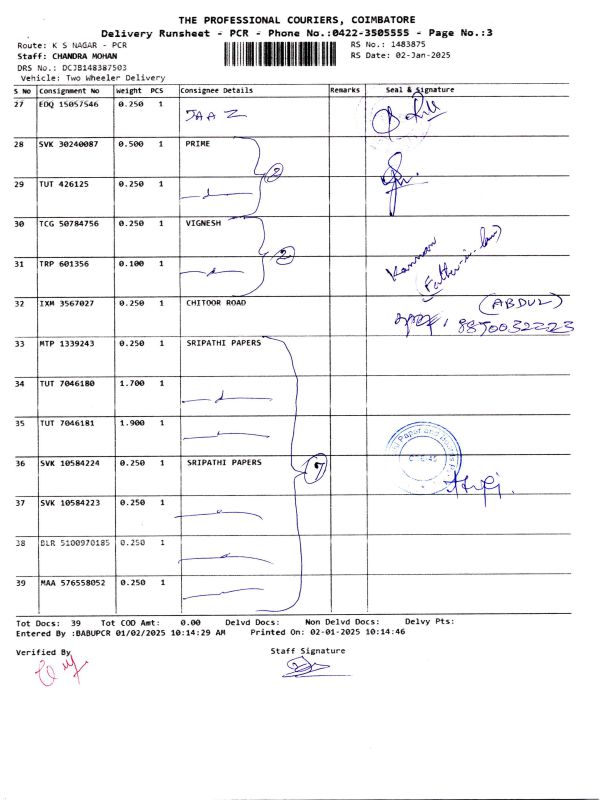 THE PROFESSIONAL COURIERS, COIMBATORE
Delivery Runsheet - PCR - Phone No.:0422-3505555 - Page No.:3
Route: K S NAGAR - PCR RS No.: 1483875
Staff: CHANDRA MOHAN RS Date: 02-Jan-2025
DRS No.: DCJB148387503
Vehicle: Two Wheeler Delivery
S No Consignment No Weight PCS Consignee Details Remarks Seal & Signature
27 EDQ 15057546 0.250 1 JAAZ
28 SVK 30240087 0.500 1 PRIME
2
29 TUT 426125 0.250 1 -d-
30 TCG 50784756 0.250 1 VIGNESH
2 Kannan
31 TRP 601356 0.100 1 -d- (Father-in-law)
32 IXM 3567027 0.250 1 CHITOOR ROAD (ABDUL)
8850032223
33 MTP 1339243 0.250 1 SRIPATHI PAPERS
34 TUT 7046180 1.700 1 -d-
35 TUT 7046181 1.900 1 -d-
Paper and
36 SVK 10584224 0.250 1 SRIPATHI PAPERS 7
37 SVK 10584223 0.250 1 -d-
38 BLR 5100970185 0.250 1 -d-
39 MAA 576558052 0.250 1 -d-
Tot Docs: 39 Tot COD Amt: 0.00 Delvd Docs: Non Delvd Docs: Delvy Pts:
Entered By :BABUPCR 01/02/2025 10:14:29 AM Printed On: 02-01-2025 10:14:46
Verified By Staff Signature